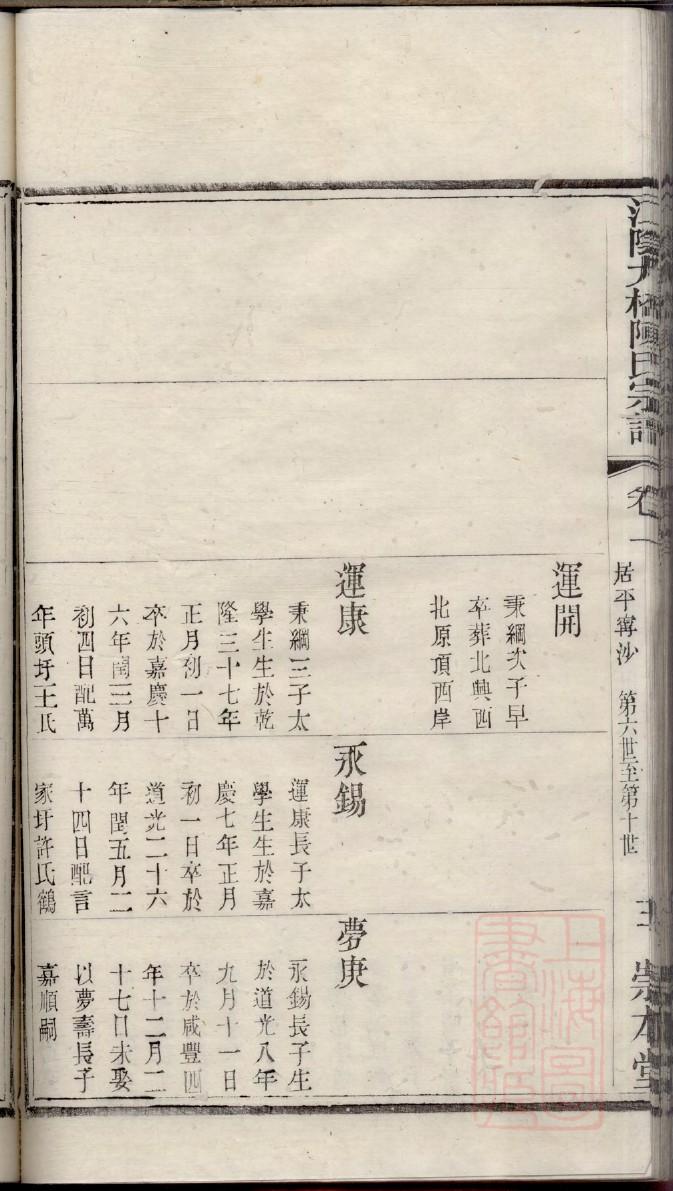 江陰大橋陳氏宗譜
卷一
居平甯沙
第六世至第十世
崇本堂
運開
秉綱次子早
卒葬北興西
北原頂西岸
運康
秉綱三子太
學生生於乾
隆三十七年
正月初一日
卒於嘉慶十
六年閏三月
初四日配萬
年頭圩王氏
永錫
運康長子太
學生生於嘉
慶七年正月
初一日卒於
道光二十六
年閏五月二
十四日配言
家圩許氏鶴
夢庚
永錫長子生
於道光八年
九月十一日
卒於咸豐四
年十二月二
十七日未娶
以夢壽長子
嘉順嗣
上海圖書館藏